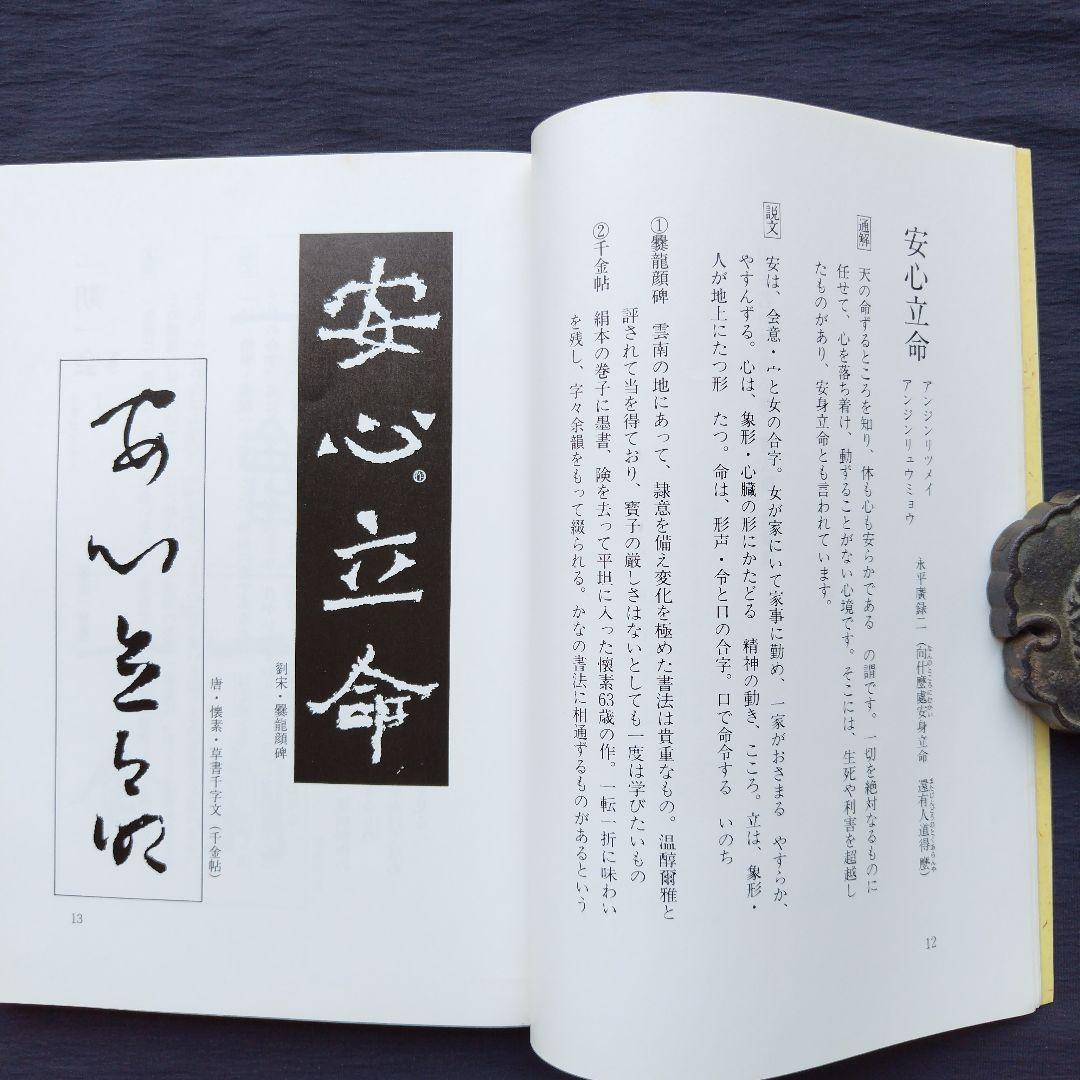 安心立命
アンジンリツメイ
アンジンリュウミョウ
永平廣録二(向什麼處安身立命 還有人道得麼)
通解 天の命ずるところを知り、体も心も安らかである の謂です。一切を絶対なるものに
任せて、心を落ち着け、動ずることがない心境です。そこには、生死や利害を超越し
たものがあり、安身立命とも言われています。
説文 安は、会意・宀と女の合字。女が家にいて家事に勤め、一家がおさまる やすらか、
やすんずる。心は、象形・心臓の形にかたどる 精神の動き、こころ。立は、象形・
人が地上にたつ形 たつ。命は、形声・令と口の合字。口で命令する いのち
①爨龍顔碑 雲南の地にあって、隷意を備え変化を極めた書法は貴重なもの。温醇爾雅と
評されて当を得ており、寶子の厳しさはないとしても一度は学びたいもの
②千金帖 絹本の巻子に墨書、険を去って平坦に入った懐素63歳の作。一転一折に味わい
を残し、字々余韻をもって綴られる。かなの書法に相通ずるものがあるという
12
安心立命
作
劉宋・爨龍顔碑
安心立命
唐・懐素・草書千字文(千金帖)
13